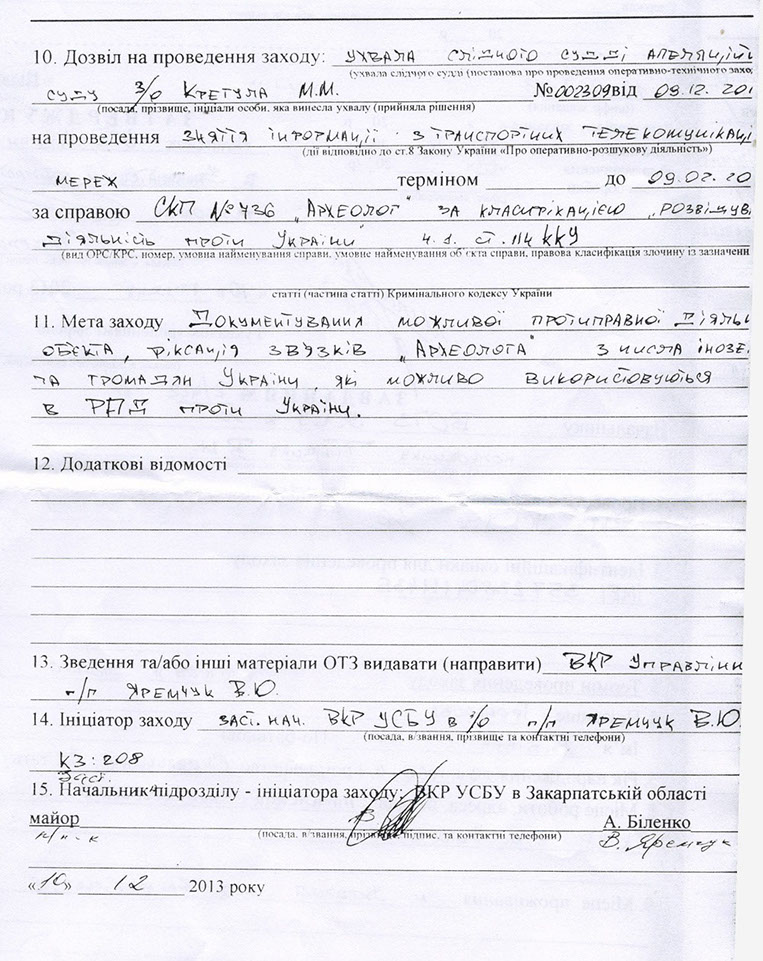 10. Дозвіл на проведення заходу: УХВАЛА СЛІДЧОГО СУДДІ АПЕЛЯЦІЙ
(ухвала слідчого судді (постанова про проведення оперативно-технічного захо
СУДУ З/О КРЕТУЛА М.М. №002309 від 09.12.201
(посада, прізвище, ініціали особи, яка винесла ухвалу (прийняла рішення)
на проведення ЗНЯТТЯ ІНФОРМАЦІЇ З ТРАНСПОРТНИХ ТЕЛЕКОМУНІКАЦІ
(дії відповідно до ст.8 Закону України «Про оперативно-розшукову діяльність»)
МЕРЕЖ терміном до 09.02.20
за справою СКП №436 „АРХЕОЛОГ" ЗА КЛАСИФІКАЦІЄЮ „РОЗВІДУВ
ДІЯЛЬНІСТЬ ПРОТИ УКРАЇНИ" Ч.1. СТ.114 ККУ
(вид ОРС/КРС, номер, умовна найменування справи, умовне найменування об єкта справи, правова класифікація злочину із зазначени
статті (частина статті) Кримінального кодексу України
11. Мета заходу ДОКУМЕНТУВАННЯ МОЖЛИВОЇ ПРОТИПРАВНОЇ ДІЯЛЬ
ОБЄКТА, ФІКСАЦІЯ ЗВ'ЯЗКІВ „АРХЕОЛОГА" З ЧИСЛА ІНОЗЕ
ТА ГРОМАДЯН УКРАЇНИ, ЯКІ МОЖЛИВО ВИКОРИСТОВУЮТЬСЯ
В РПД ПРОТИ УКРАЇНИ.
12. Додаткові відомості
13. Зведення та/або інші матеріали ОТЗ видавати (направити) ВКР УПРАВЛІНН
П/П ЯРЕМЧУК В.Ю.
14. Ініціатор заходу ЗАСТ. НАЧ. ВКР УСБУ В З/О П/П ЯРЕМЧУК В.Ю.
(посада, в/звання, прізвище та контактні телефони)
КЗ: 208
Заст.
15. Начальник підрозділу - ініціатора заходу: ВКР УСБУ в Закарпатській області
майор А. Біленко
(посада, в/звання, прізвище, підпис, та контактні телефони)
п/п-к В. Яремчук
«10» 12 2013 року